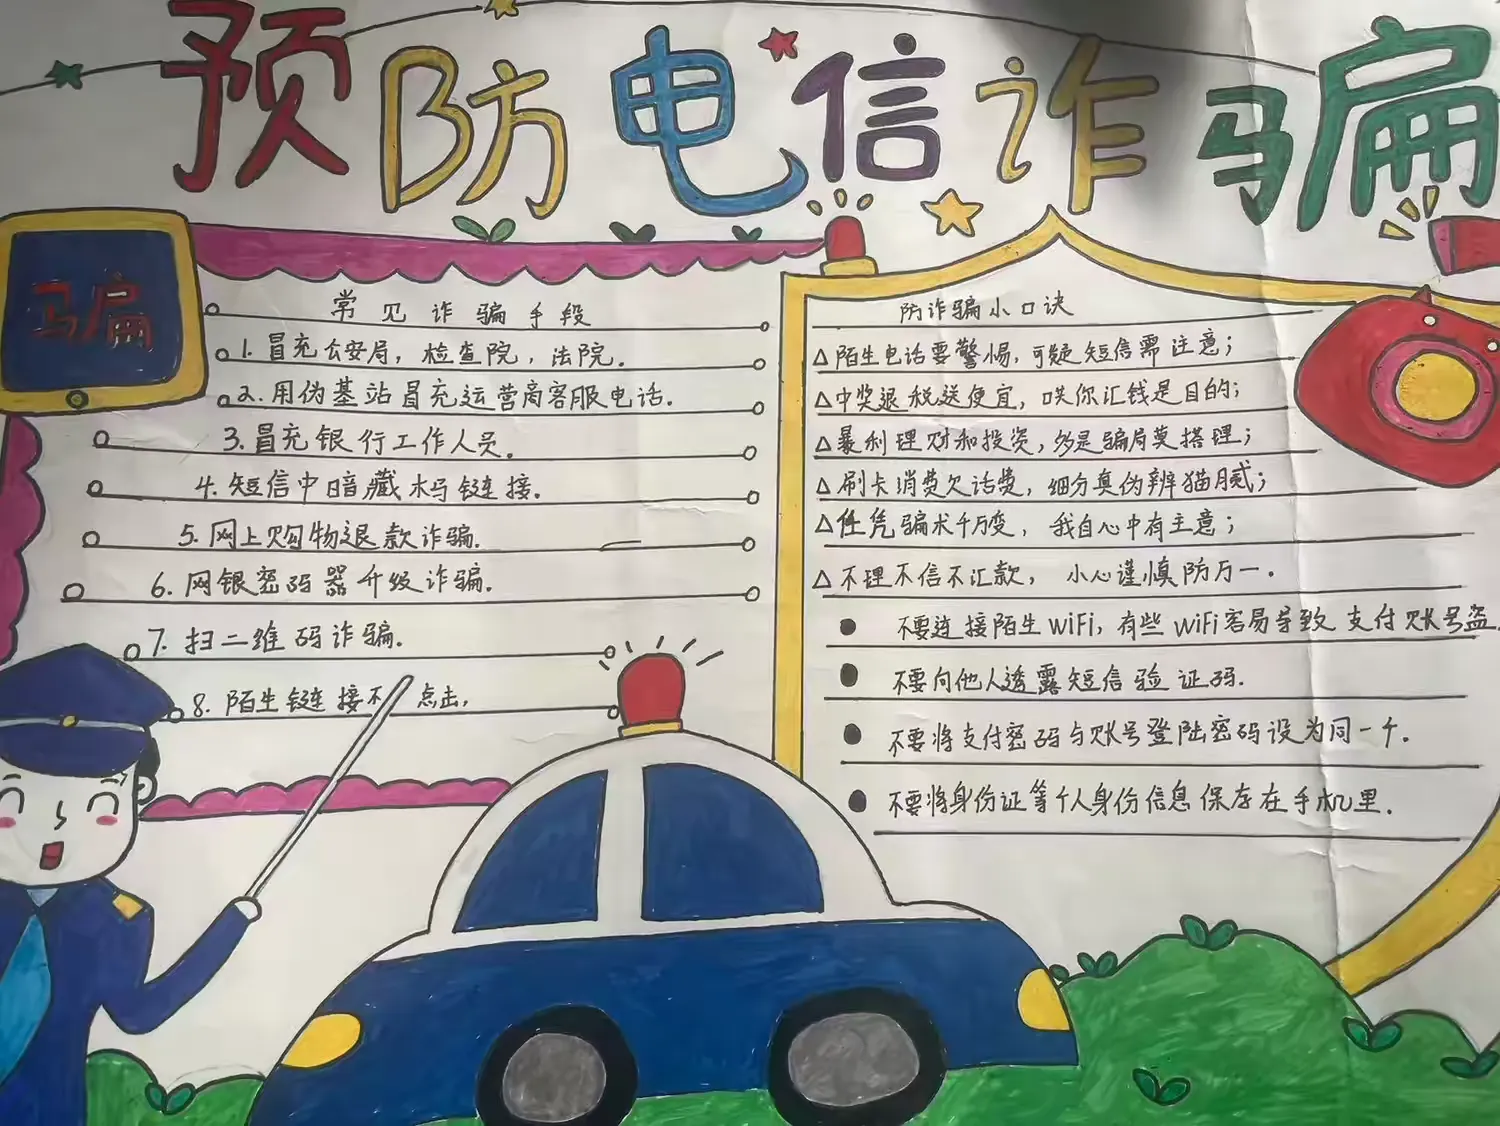 预防电信诈骗
骗
常见诈骗手段
1. 冒充公安局，检查院，法院.
2. 用伪基站冒充运营商客服电话.
3. 冒充银行工作人员.
4. 短信中暗藏木马链接.
5. 网上购物退款诈骗.
6. 网银密码器升级诈骗.
7. 扫二维码诈骗.
8. 陌生链接不点击,
防诈骗小口诀
△陌生电话要警惕, 可疑短信需注意;
△中奖退税送便宜, 哄你汇钱是目的;
△暴利理财和投资, 多是骗局莫搭理;
△刷卡消费欠话费, 细分真伪辨猫腻;
△任凭骗术千万变, 我自心中有主意;
△不理不信不汇款, 小心谨慎防万一.
● 不要连接陌生WiFi, 有些WiFi容易导致支付账号盗
● 不要向他人透露短信验证码.
● 不要将支付密码与账号登陆密码设为同一个.
● 不要将身份证等个人身份信息保存在手机里.